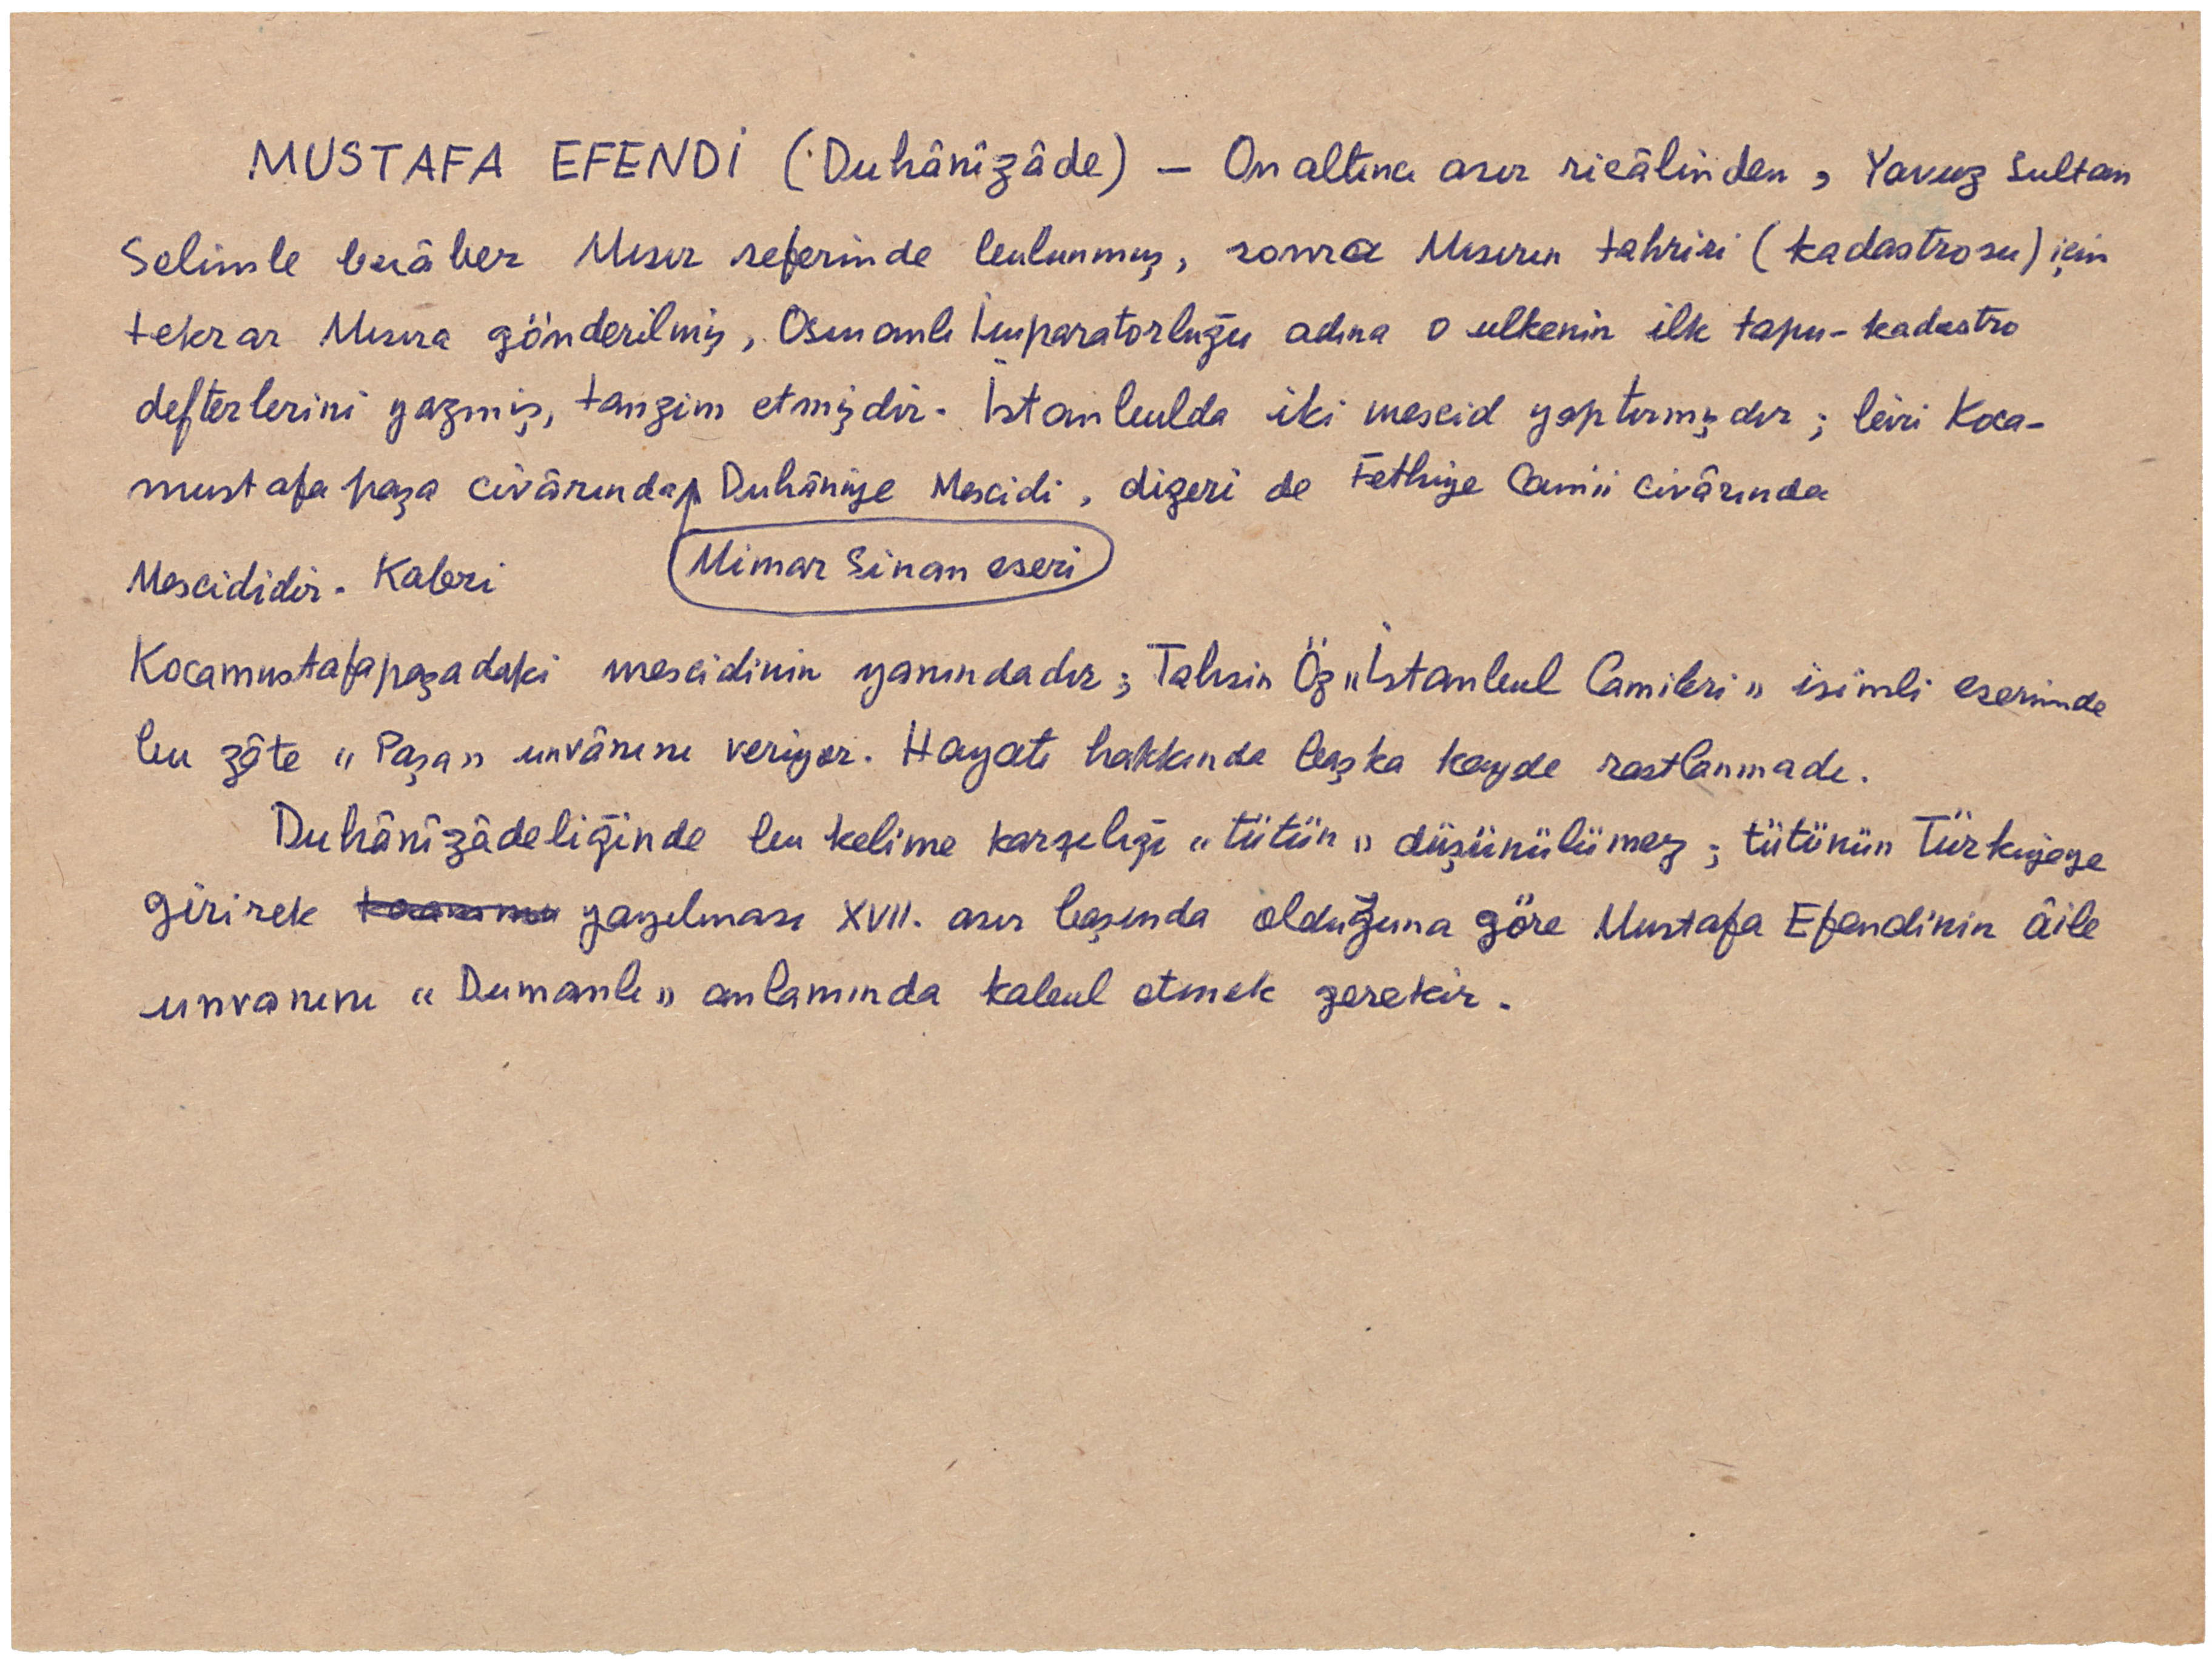 MUSTAFA EFENDİ (Duhânîzâde) — On altıncı asır ricâlinden, Yavuz Sultan
Selimle berâber Mısır seferinde bulunmuş, sonra Mısırın tahriri (kadastrosu) için
tekrar Mısıra gönderilmiş, Osmanlı İmparatorluğu adına o ulkenin ilk tapu-kadastro
defterlerini yazmış, tanzim etmişdir. İstanbulda iki mescid yaptırmışdır; biri Koca-
mustafapaşa civârında Duhâniye Mescidi, digeri de Fethiye Camii civârında
Mimar Sinan eseri
Mescididir. Kabri
Kocamustafapaşadaki mescidinin yanındadır; Tahsin Öz "İstanbul Camileri" isimli eserinde
bu zâte "Paşa" unvânını veriyor. Hayatı hakkında başka kayde rastlanmadı.
Duhânîzâdeliğinde bu kelime karşılığı "tütün" düşünülümez; tütünün Türkiyeye
girirek yayılması XVII. asır başında olduğuna göre Mustafa Efendinin âile
unvanını "Dumanlı" anlamında kabul etmek gerekir.